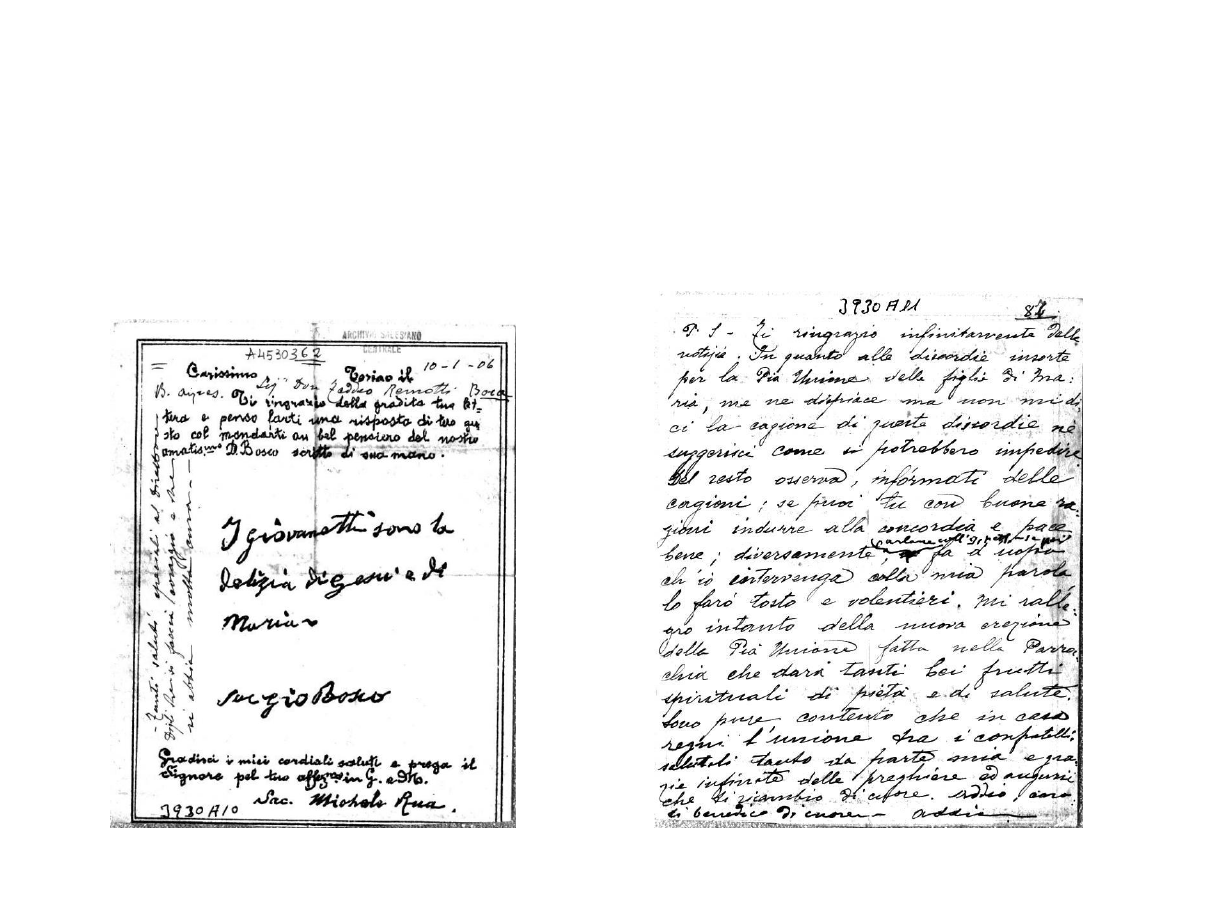 ARCHIVIO SALESIANO
CENTRALE
A4530362
Carissimo Torino il 10-1-06
Sig. Don Taddeo Remotti Boca
B. Ayres. Ti ringrazio della gradita tua let-
tera e penso farti una risposta di tuo gu
sto col mandarti un bel pensiero del nostro
amatis.mo D. Bosco scritto di sua mano.
I giovanetti sono la
delizia di Gesù e di
Maria
Sac gio Bosco
Gradisci i miei cordiali saluti e prega il
Signore pel tuo aff.mo in G. e M.
Sac. Michele Rua.
3930A10
Tanti saluti speciali al direttore
digli che si faccia coraggio e che
si abbia molta cura
3930A11
P. S - Ti ringrazio infinitamente delle
notizie. In quanto alle discordie insorte
per la Pia Unione delle figlie di Ma:
ria, me ne dispiace ma non mi di
ci la cagione di queste discordie nè
suggerisci come si potrebbero impedire
Del resto osserva, informati delle
cagioni; se puoi tu con buone ra
gioni indurre alla concordia e pace
bene; diversamente, fa d'uopo
ch'io intervenga colla mia parola
lo farò tosto e volentieri. Mi ralle
gro intanto della nuova erezione
della Pia Unione fatta nella Parro
chia che darà tanti bei frutti
spirituali di pietà e di salute.
Sono pure contento che in casa
regni l'unione tra i confratelli:
salutali tanto da parte mia e gra
zie infinite delle preghiere ed augurii
che ti ricambio di cuore. Addio, caro
ti benedico di cuore - addio